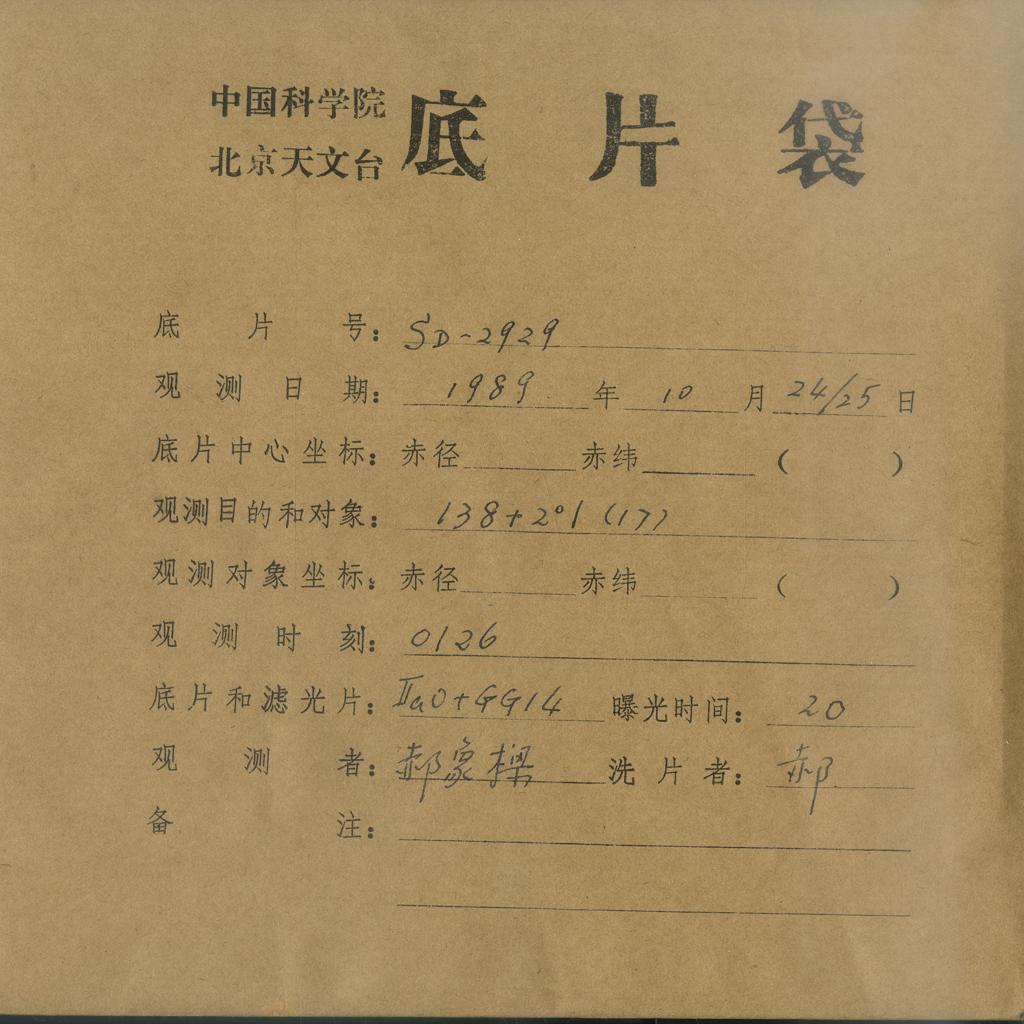 中国科学院
北京天文台 底片袋
底片号: SD-2929
观测日期: 1989 年 10 月 24/25 日
底片中心坐标: 赤径 赤纬 ( )
观测目的和对象: 138+2°1 (17)
观测对象坐标: 赤径 赤纬 ( )
观测时刻: 0126
底片和滤光片: IIaO+GG14 曝光时间: 20
观测者: 郝象樑 洗片者: 郝
备注: